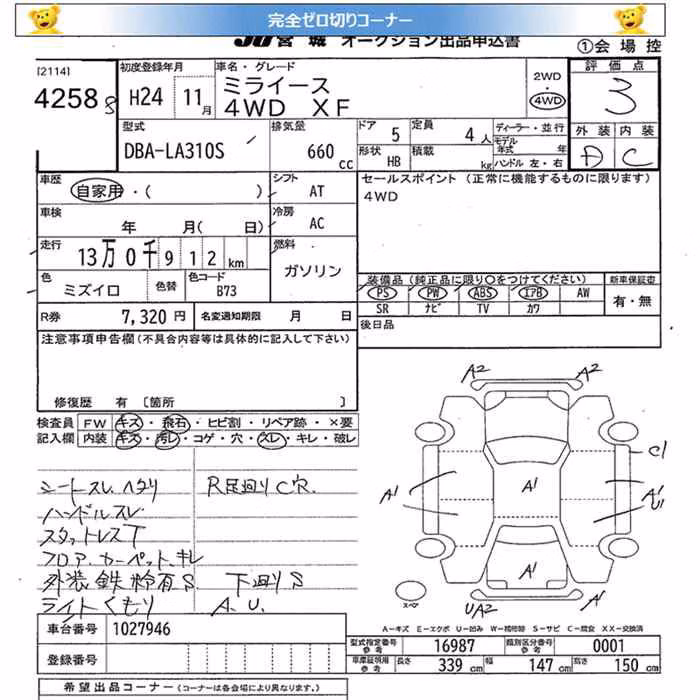 完全ゼロ切りコーナー
JU宮城 オークション出品申込書
①会場控
[2114]
4258 S
初度登録年月
H24 11月
車名・グレード
ミライース
4WD XF
2WD
・
4WD
評価点
3
外装 内装
D C
型式
DBA-LA310S
排気量
660 cc
ドア 5
定員 4人
形状 HB
積載 kg
ディーラー・並行
モデル年式 年
ハンドル 左・右
車歴
自家用・( )
シフト AT
車検
年 月( 日)
冷房 AC
走行
13万0千912km
燃料
ガソリン
色
ミズイロ
色替
色コード
B73
R券 7,320円
名変通知期限 月 日
セールスポイント (正常に機能するものに限ります)
4WD
装備品(純正品に限り○をつけてください)
新車保証書
PS PW ABS エアB AW
SR ナビ TV カワ
有・無
後日品
注意事項申告欄(不具合内容等は具体的に記入して下さい)
修復歴 有 〔箇所 〕
検査員
記入欄
FW キズ・飛石・ヒビ割・リペア跡・×要
内装 キズ・汚レ・コゲ・穴・スレ・キレ・破レ
シートスレ.ヘタリ
R足廻りC穴.
ハンドルスレ
スタットレスT
フロアカーペットキレ
外装鉄粉有S
下廻りS
ライトくもり
A.U.
A2 A2
C1
A1 A1 A1
U1
A1
UA2 A1
スペア
A-キズ E-エクボ U-凹み W-補修跡 S-サビ C-腐食 XX-交換済
車台番号 1027946
登録番号
型式指定番号 参考 16987
類別区分番号 参考 0001
車庫証明用 参考 長さ 339cm 幅 147cm 高さ 150cm
希望出品コーナー(コーナーは各会場により異なります。)